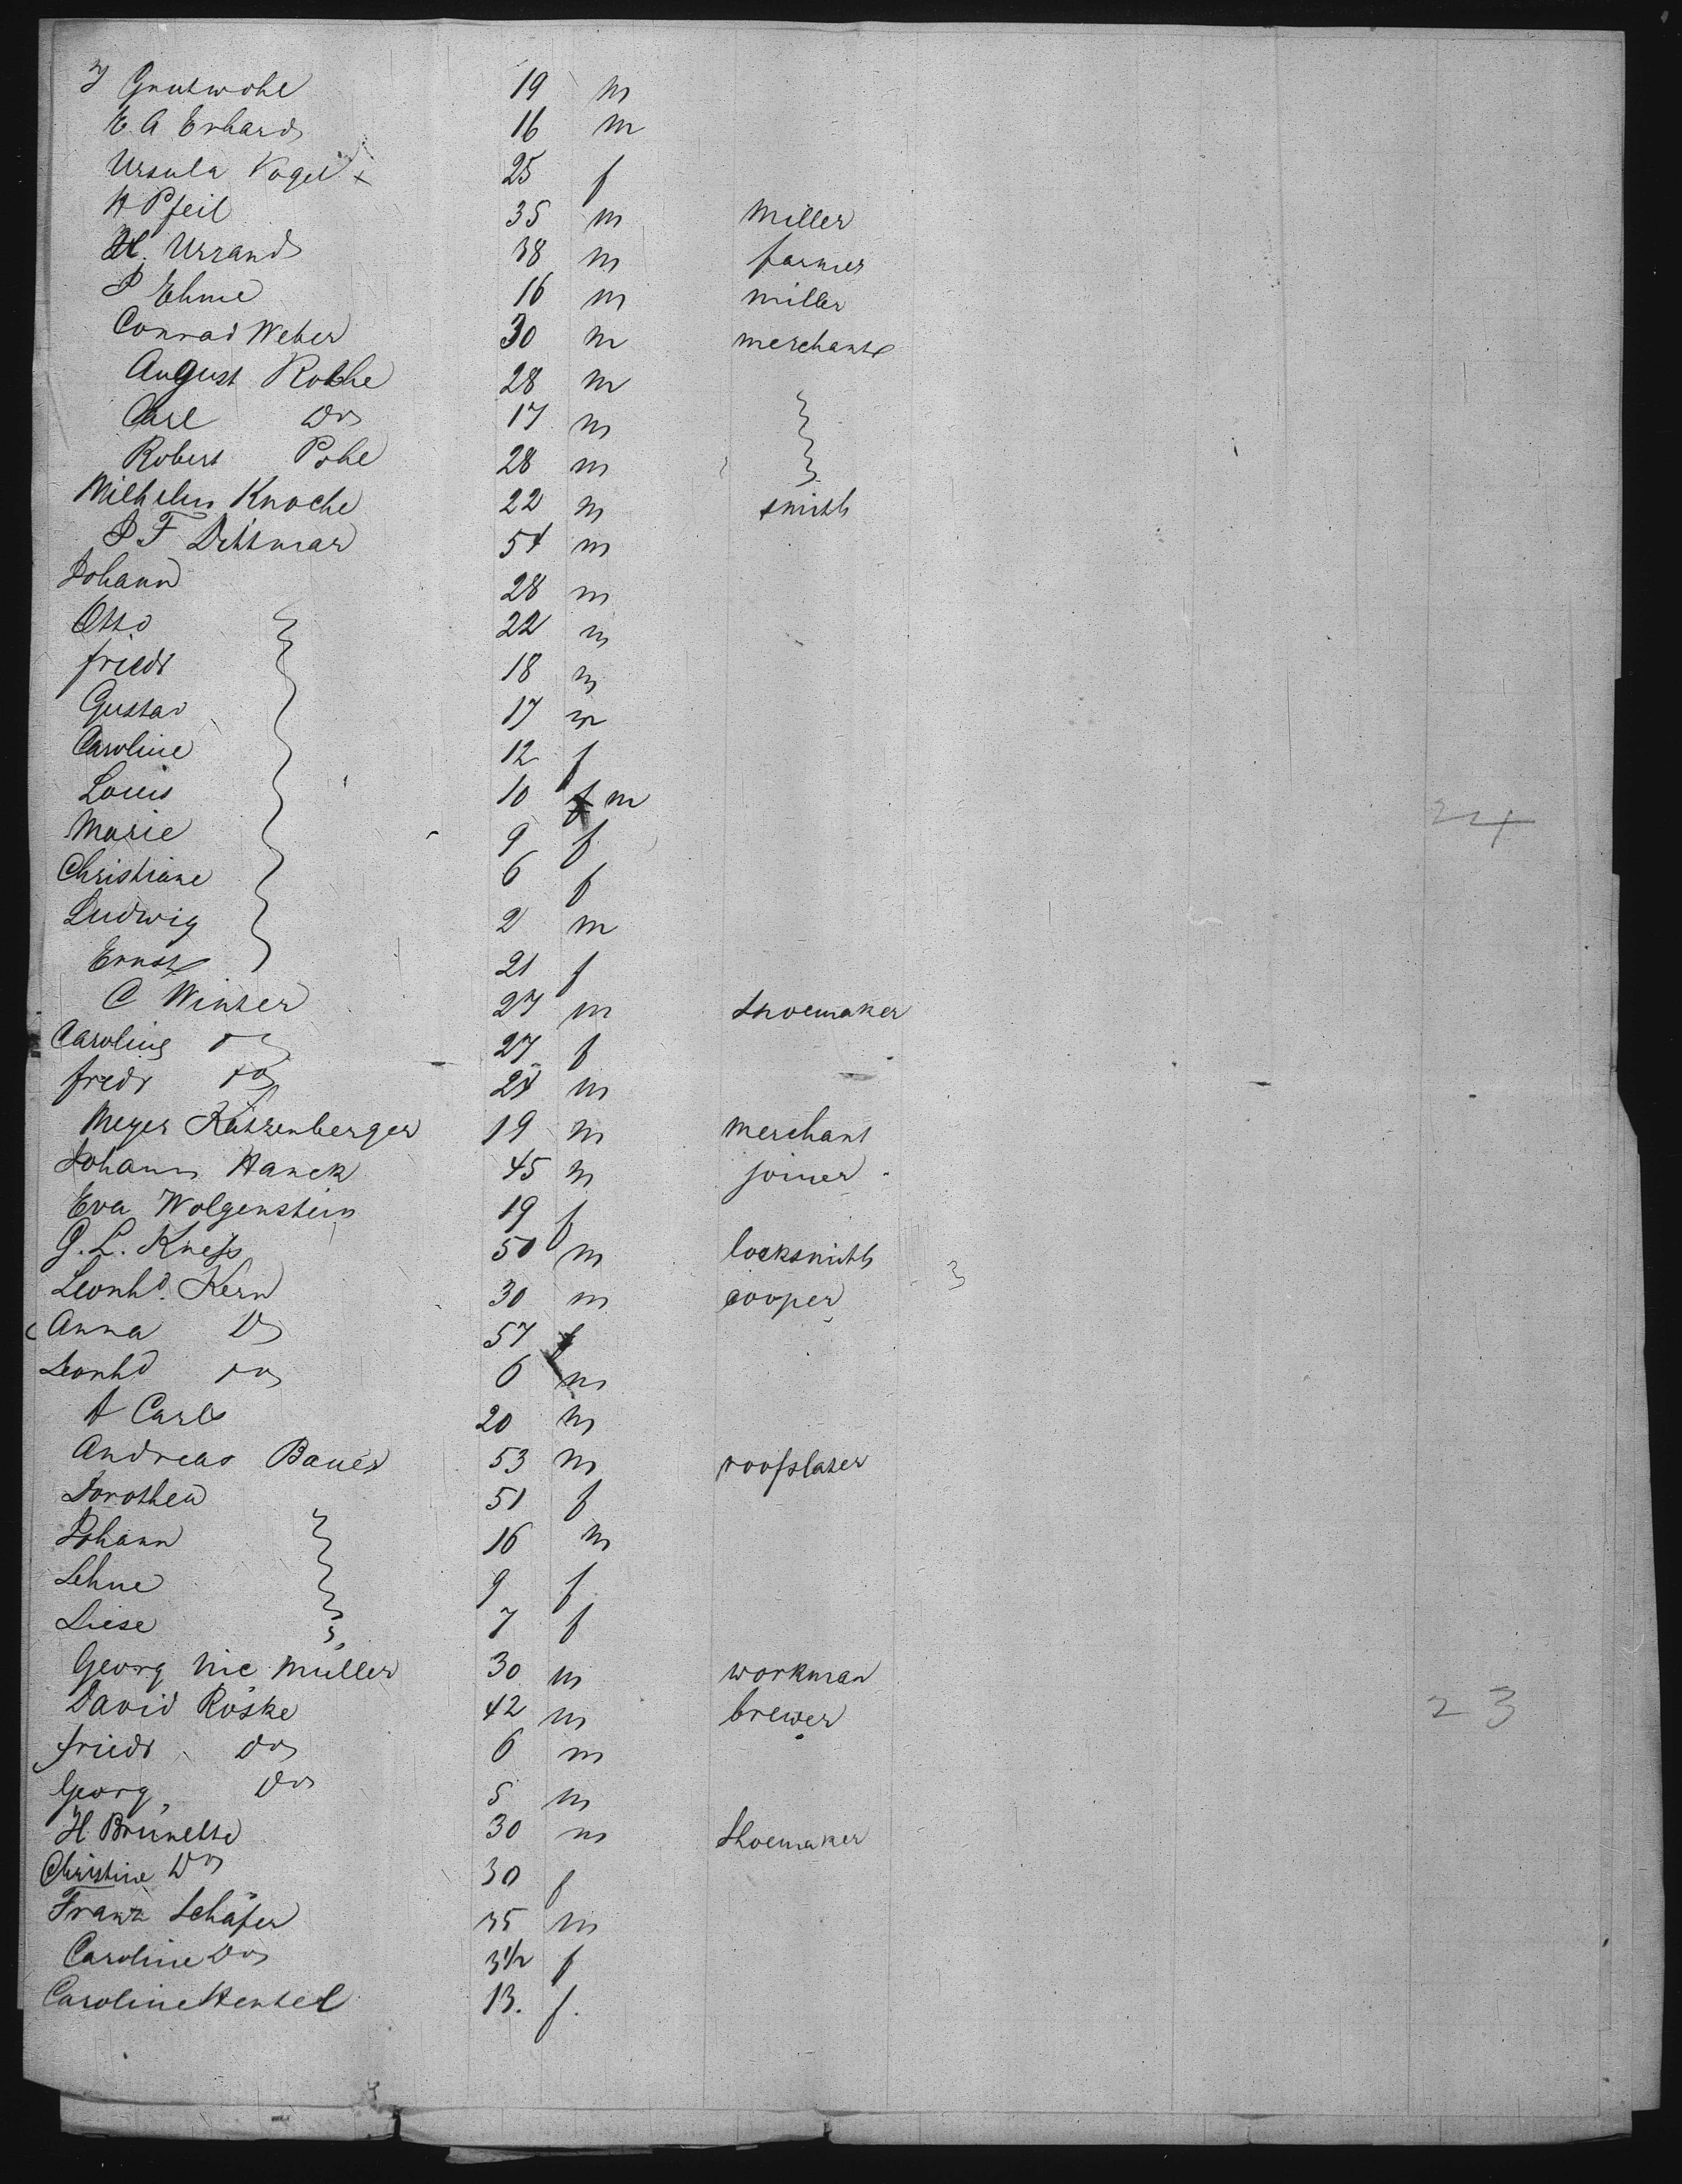 J Grutwohl 19 m
E. A Erhard 16 m
Ursula Vogel x 25 f
H Pfeil 35 m miller
H. Urrand 38 m farmer
P Ehme 16 m miller
Conrad Weber 30 m merchant
August Rothe 28 m
Carl Do 17 m
Robert Pohl 28 m
Wilhelm Knoche 22 m smith
P F Dittmar 54 m
Johann 28 m
Otto 22 m
friedr 18 m
Gustav 17 m
Caroline 12 f
Louis 10 m
Marie 9 f
Christiane 6 f
Ludwig 2 m
Ernst 21 f
C Winter 27 m shoemaker
Caroline do 27 f
fredr do 24 m
Meyer Katzenberger 19 m merchant
Johann Hanck 45 m joiner
Eva Wolgenstein 19 f
G. L. Kneſs 50 m locksmith
Leonhd. Kern 30 m cooper
Anna Do 57 f
Leonhd do 6 m
A Carls 20 m
Andreas Bauer 53 m roofslater
Dorothea 51 f
Johann 16 m
Lehne 9 f
Liese 7 f
Georg Nic Müller 30 m workman
David Röske 42 m brewer
friedr Do 6 m
Georg Do 5 m
H Brünette 30 m shoemaker
Christine Do 30 f
Franz Schäfer 35 m
Caroline Do 3 1/2 f
Caroline Hentel 13. f.
24
23